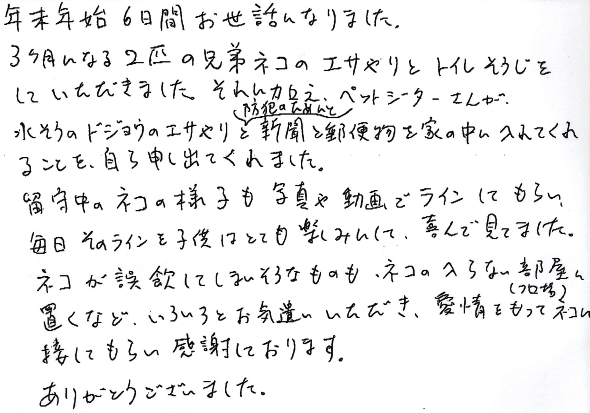 年末年始 6日間 お世話になりました。
3ヶ月になる 2匹 の兄弟ネコの エサやりと トイレそうじを
して いただきました。それに加え、ペットシッターさんが、
防犯のためにと
水そうの ドジョウの エサやりと 新聞と郵便物を 家の中に 入れてくれ
ることを、自ら申し出てくれました。
留守中の ネコの様子も 写真や 動画で ライン してもらい、
毎日 そのラインを 子供はとても 楽しみにして、喜んで見てました。
ネコが 誤飲してしまいそうなものも、ネコの 入らない 部屋に
(フロ場)
置くなど、いろいろと お気遣い いただき、愛情をもって ネコに
接してもらい 感謝しております。
ありがとうございました。